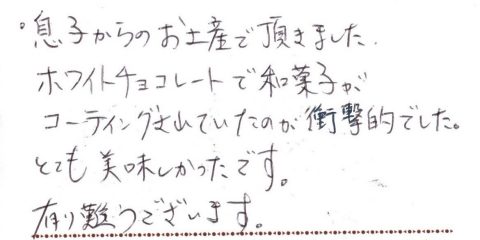 。息子からのお土産で頂きました.
ホワイトチョコレートで和菓子が
コーティングされていたのが衝撃的でした。
とても美味しかったです。
有り難うございます。